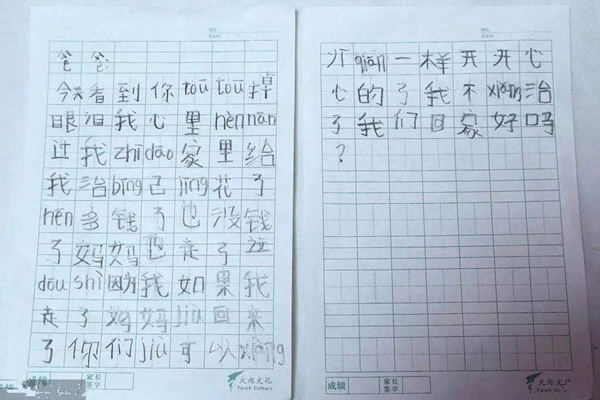 NO.
Date
爸爸
今天看到你tōu tōu掉
眼泪我心里hèn nán
过我zhī dāo家里给
我治bìng己jīng花了
hěn多钱了也没钱
了妈妈也走了这
dōu shì因为我如果我
走了妈妈jiù回来
了你们jiù可以xiàng
成绩 家长签字 火炬文化
Torch Culture
NO.
Date
以qián一样开开心
心的了我不xiǎng治
了我们回家好吗
?
成绩 家长签字 火炬文化